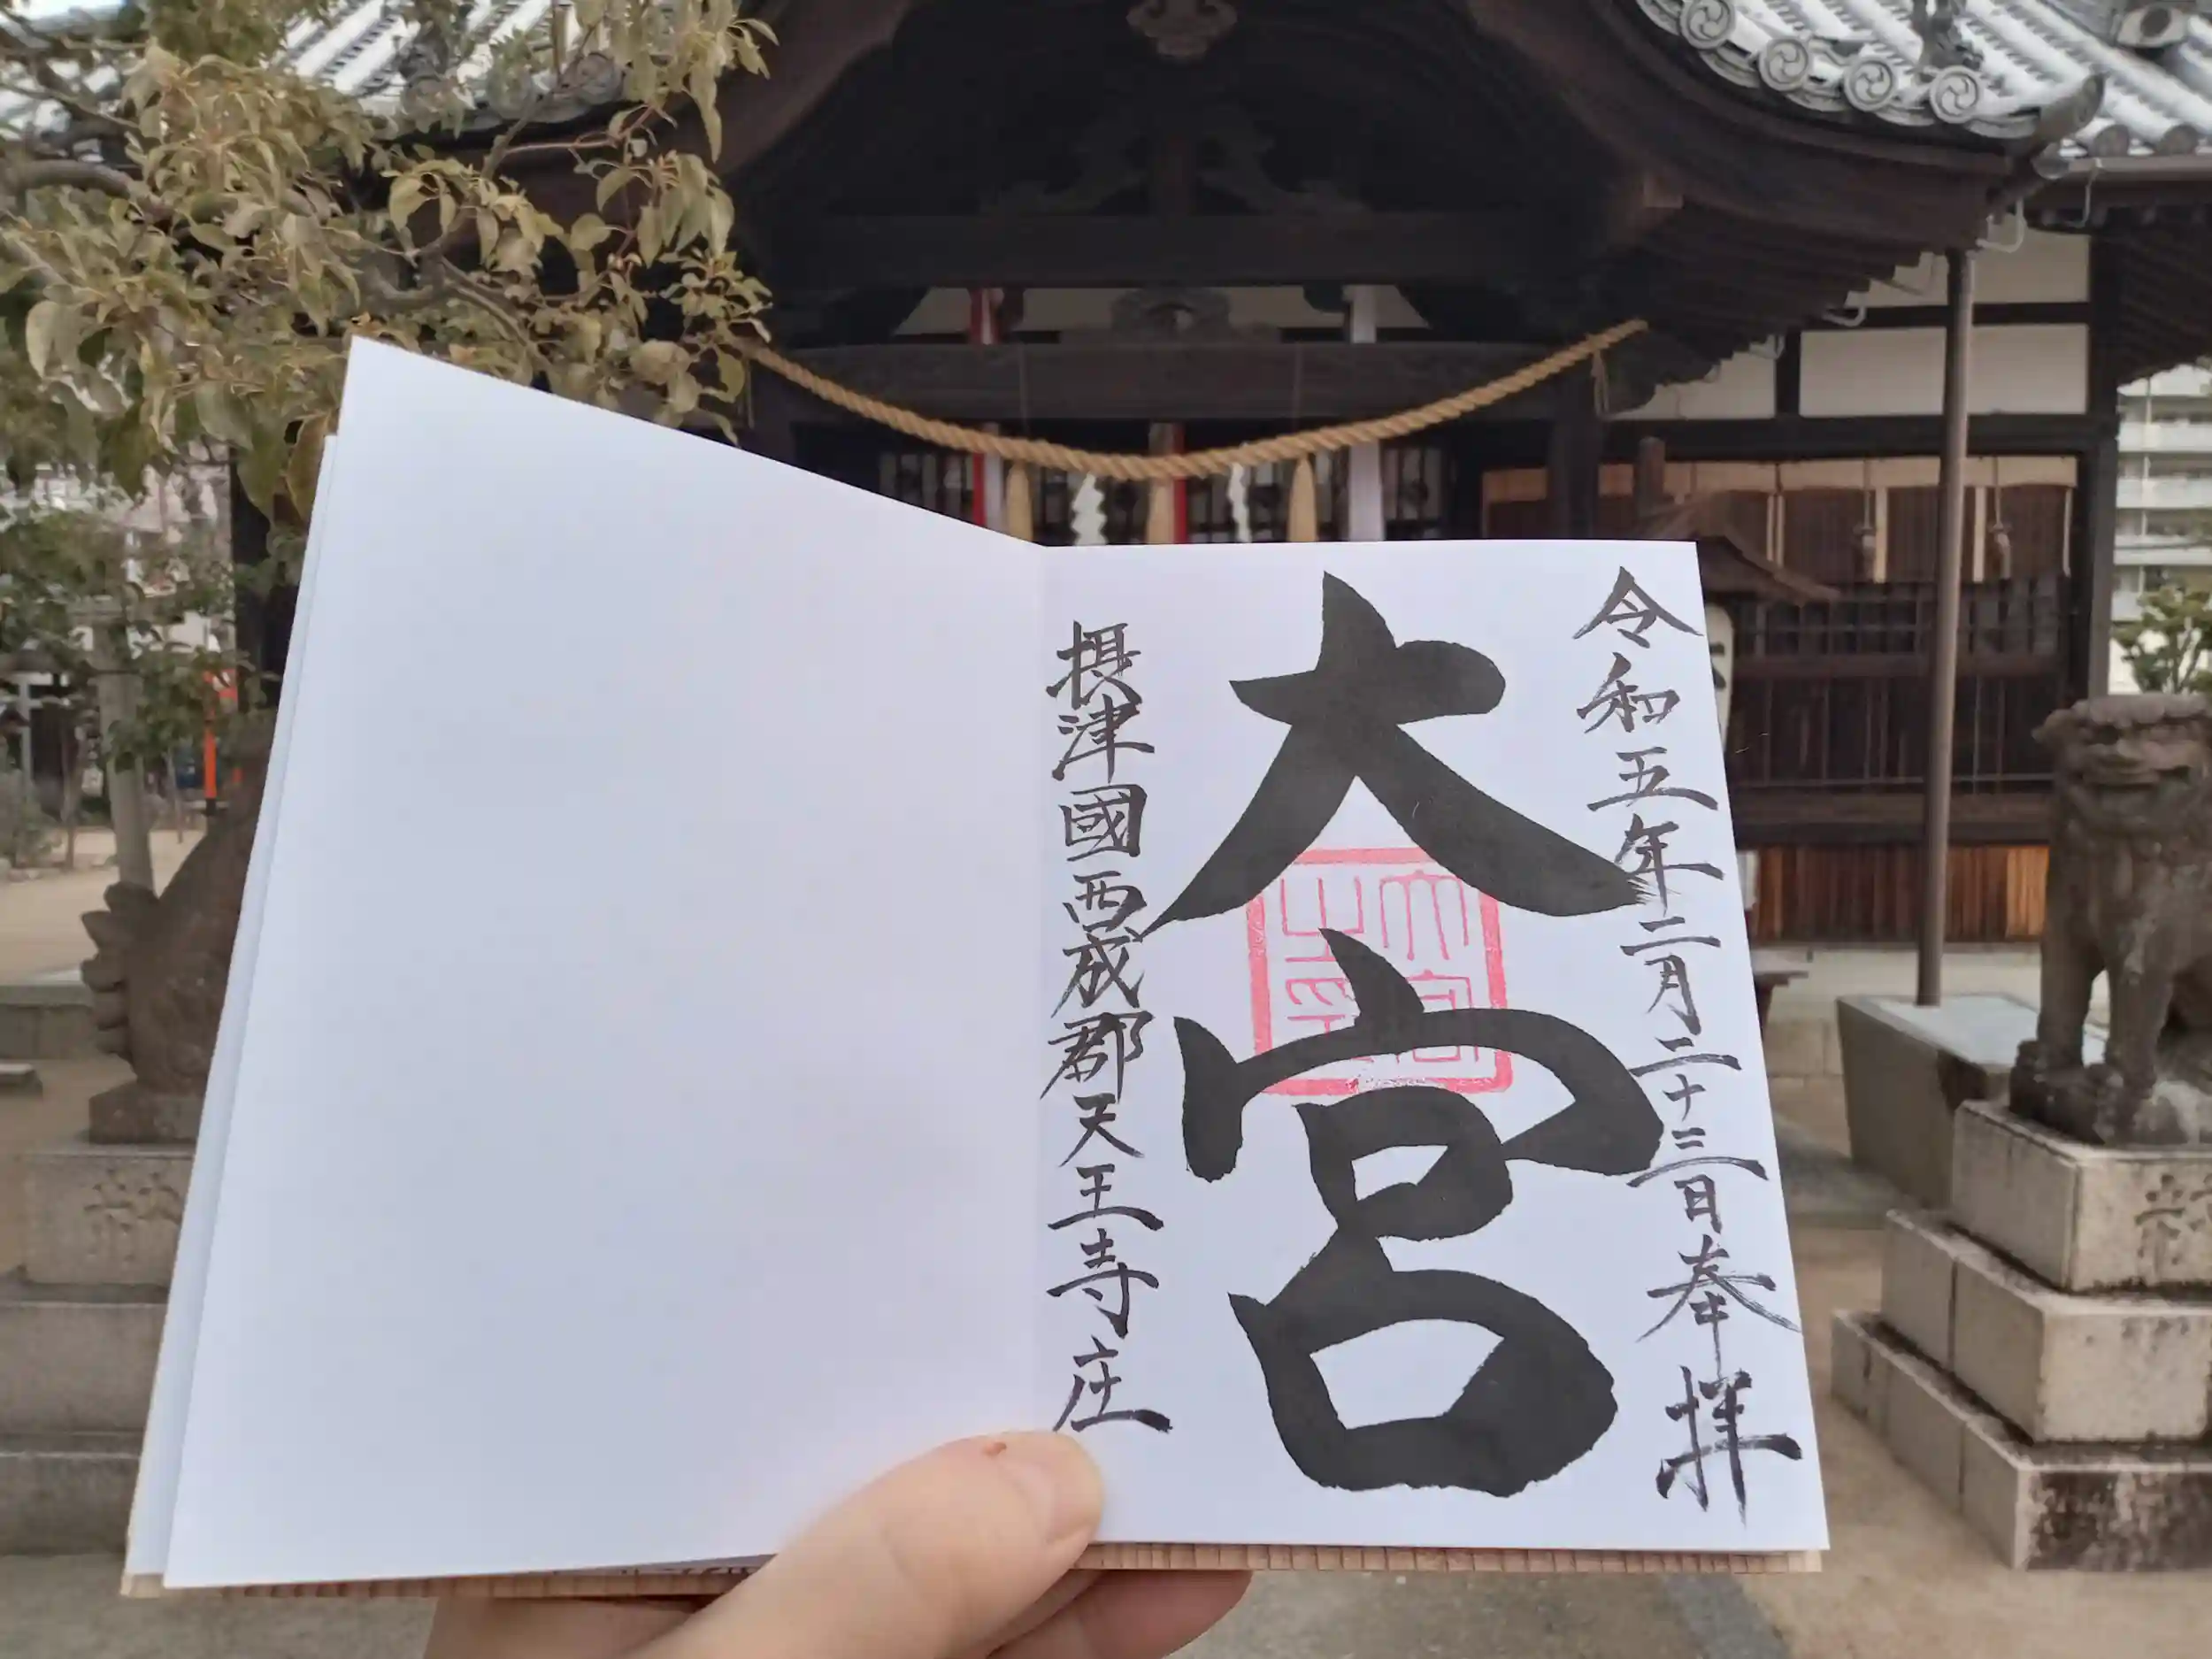 令和五年二月二十三日奉拝
大宮
大宮之印
摂津國西成郡天王寺庄